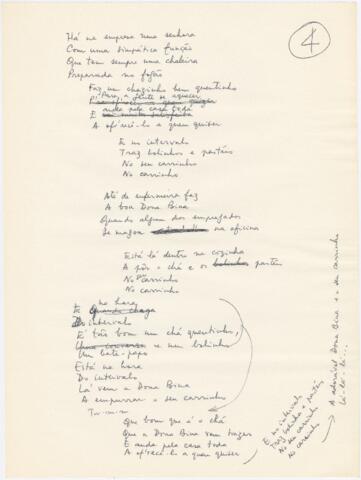 4
Há na empresa uma senhora
Com uma simpática função
Que tem sempre uma chaleira
Preparada no fogão
Faz um chazinho bem quentinho
P'ra gente se aquecer
E anda pela casa toda
A oferecê-lo a quem quiser
E no intervalo
Traz bolinhos e pastéis
No seu carrinho
No carrinho
Até de enfermeira faz
A boa Dona Bina
Quando algum dos empregados
Se magoa na oficina
Está lá dentro na cozinha
A pôr o chá e os bolinhos pastéis
No seu carrinho
No carrinho
E na hora
Do intervalo
É tão bom um chá quentinho,
Uma conversa e um bolinho
Um bate-papo
Está na hora
Do intervalo
Lá vem a Dona Bina
A empurrar o seu carrinho
Que bom que é o chá
Que a Dona Bina vem trazer
E anda pela casa toda
A oferecê-lo a quem quiser
E no intervalo
Traz bolinhos e pastéis
No seu carrinho
No carrinho
A adorável Dona Bina e o seu carrinho
Lá-lá-lá...